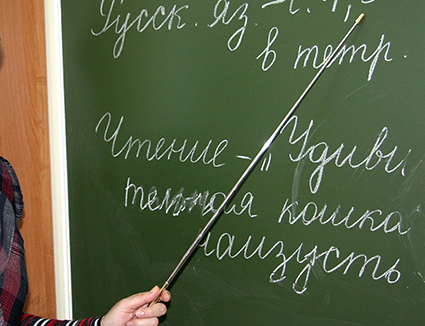 Русск. яз
в тетр.
Чтение - „Удиви
тельная кошка
наизусть